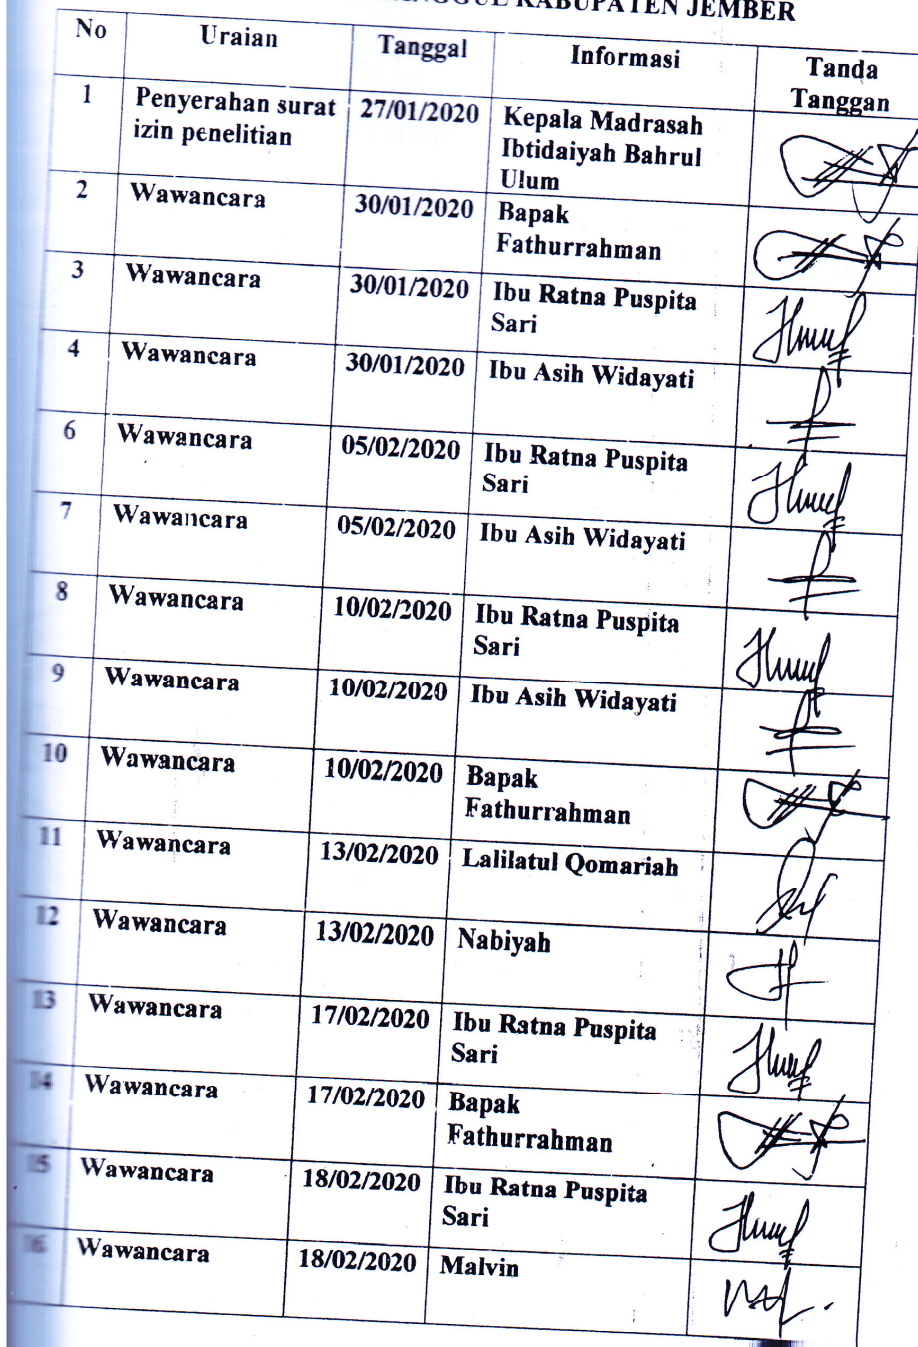 KABUPATEN JEMBER
No Uraian Tanggal Informasi Tanda
Tanggan
1 Penyerahan surat 27/01/2020 Kepala Madrasah
izin penelitian Ibtidaiyah Bahrul
Ulum
2 Wawancara 30/01/2020 Bapak
Fathurrahman
3 Wawancara 30/01/2020 Ibu Ratna Puspita
Sari
4 Wawancara 30/01/2020 Ibu Asih Widayati
6 Wawancara 05/02/2020 Ibu Ratna Puspita
Sari
7 Wawancara 05/02/2020 Ibu Asih Widayati
8 Wawancara 10/02/2020 Ibu Ratna Puspita
Sari
9 Wawancara 10/02/2020 Ibu Asih Widayati
10 Wawancara 10/02/2020 Bapak
Fathurrahman
11 Wawancara 13/02/2020 Lalilatul Qomariah
12 Wawancara 13/02/2020 Nabiyah
13 Wawancara 17/02/2020 Ibu Ratna Puspita
Sari
14 Wawancara 17/02/2020 Bapak
Fathurrahman
15 Wawancara 18/02/2020 Ibu Ratna Puspita
Sari
16 Wawancara 18/02/2020 Malvin